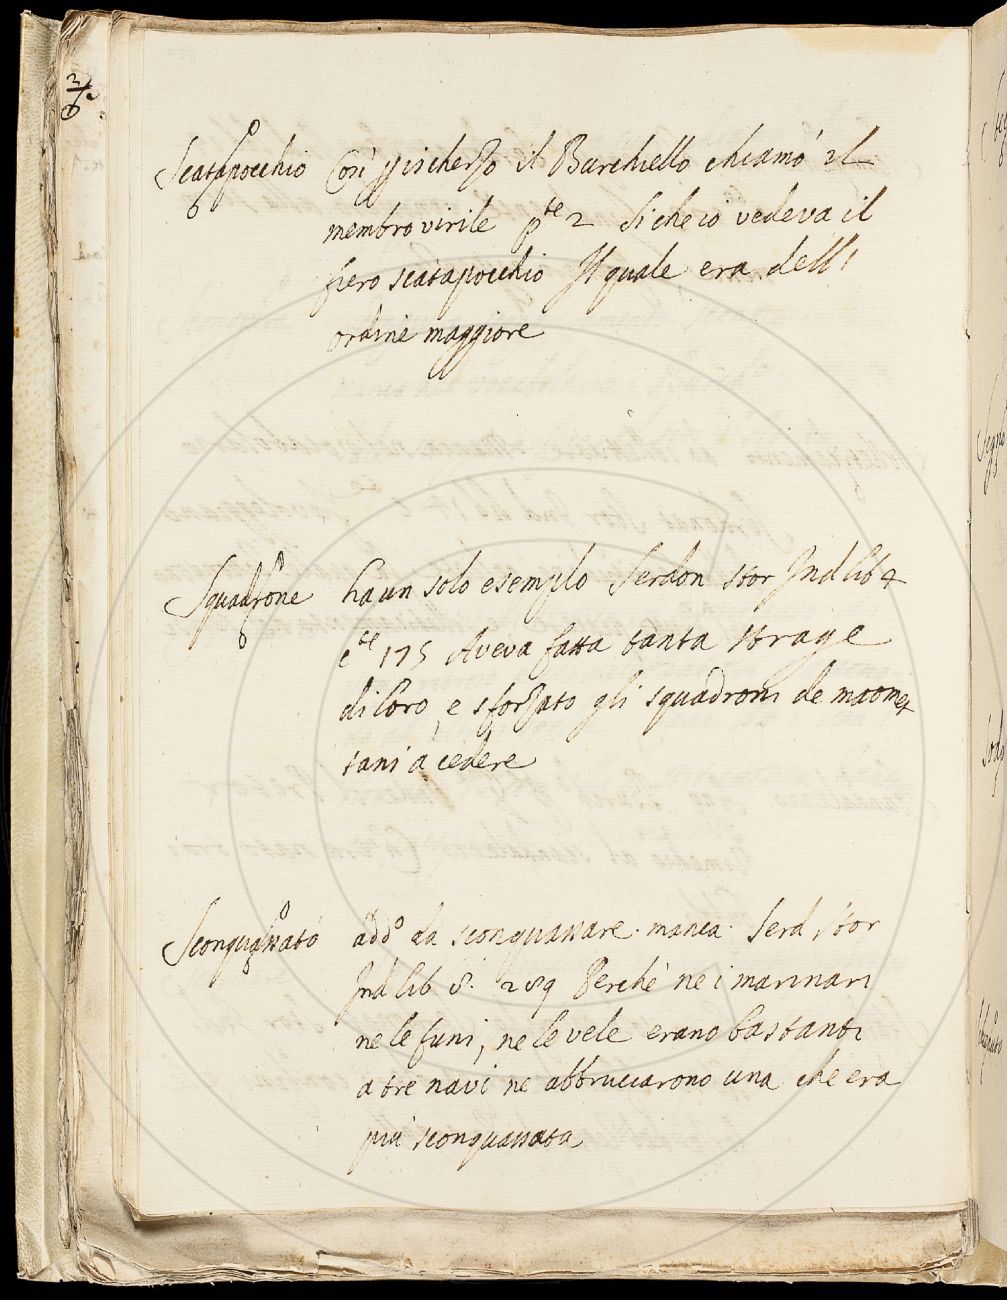 Scatapocchio Così p ischerzo il Burchiello chiamò il
membro virile pte 2 Si che io vedeva il
fiero scatapocchio Il quale era dell'
ordine maggiore
Squadrone ha un solo esemplo Serdon stor Ind lib 4
cte 175 Aveva fatta tanta strage
di loro, e sforzato gli squadroni de maomet
tani à cedere
Sconquassato add° da sconquassare. manca. Serd, stor
Ind lib 8. 289 Perchè ne i marinari
ne le funi, ne le vele erano bastanti
a tre navi ne abbruciarono una che era
più sconquassata